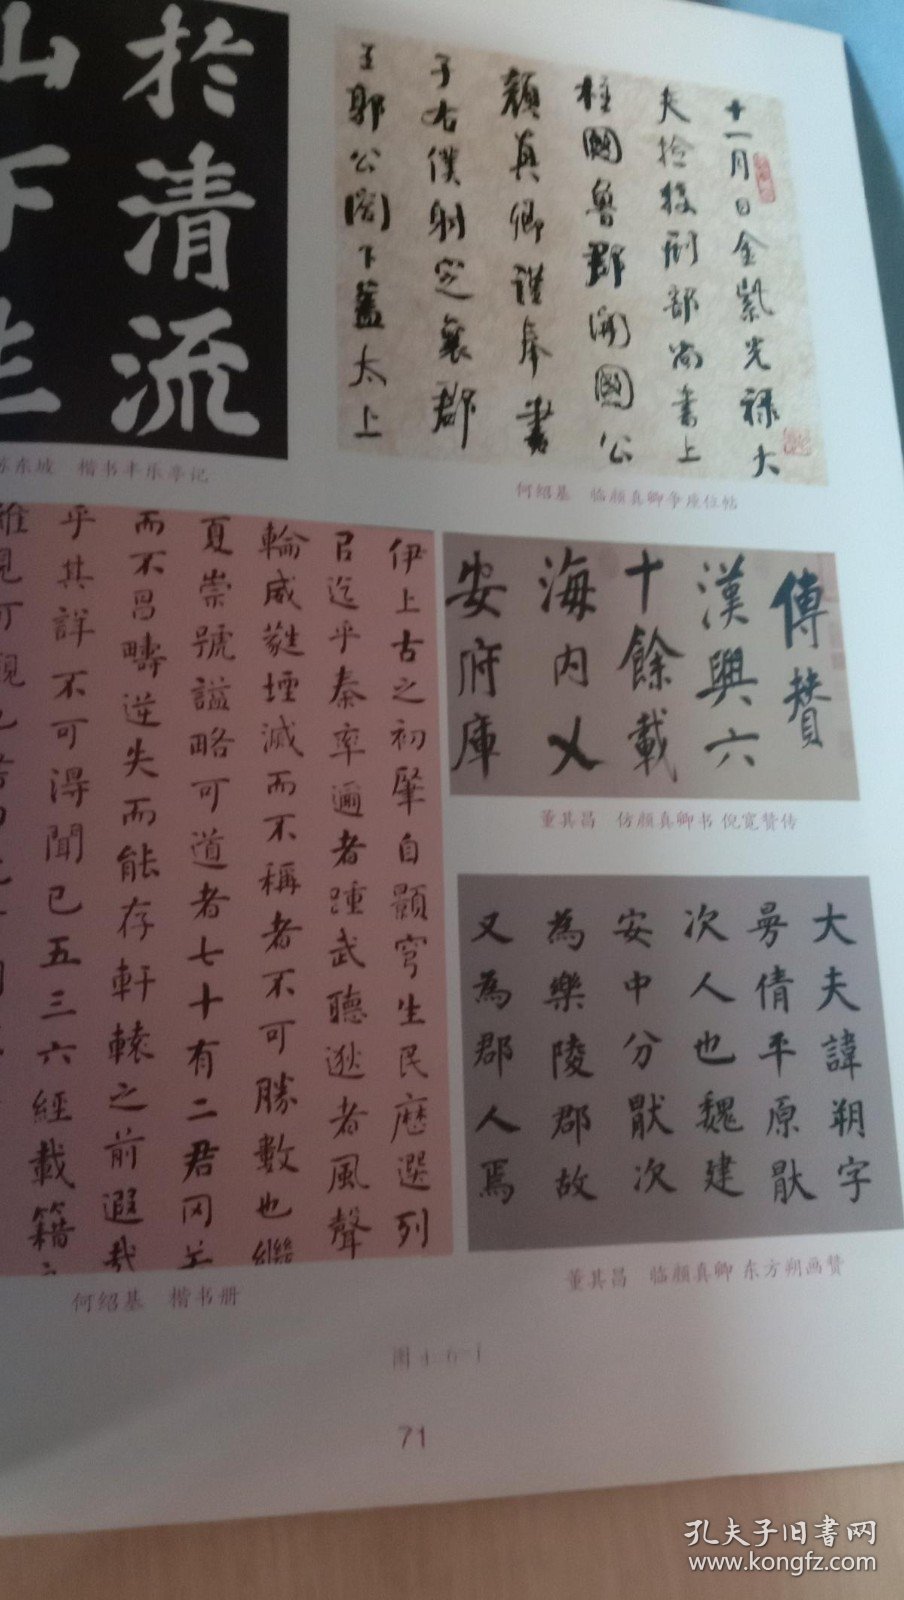 於清流
山下
苏东坡 楷书丰乐亭记
十一月日金紫光禄大
夫捡挍刑部尚書上
柱國魯郡開國公
顏真卿謹奉書
于右僕射定襄郡
王郭公閤下蓋太上
何绍基 临颜真卿争座位帖
伊上古之初肇自顥穹生民歷選列
辟迄乎秦率邇者踵武聽逖者風聲
輪威蕤堙滅而不稱者不可勝數也繼
夏崇號謚略可道者七十有二君罔若
而不昌疇逆失而能存軒轅之前遐哉
乎其詳不可得聞已五三六經載籍之
維見可觀也
何绍基 楷书册
傳贊
漢興六
十餘載
海内乂
安府庫
董其昌 仿颜真卿书 倪宽赞传
大夫諱朔字
曼倩平原猒
次人也魏建
安中分猒次
為樂陵郡故
又為郡人焉
董其昌 临颜真卿 东方朔画赞
图4-6-1
71
孔夫子旧书网
www.kongfz.com